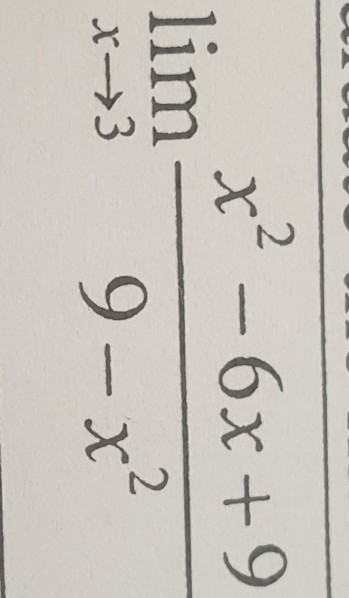 lim x→3 (x² - 6x + 9) / (9 - x²)